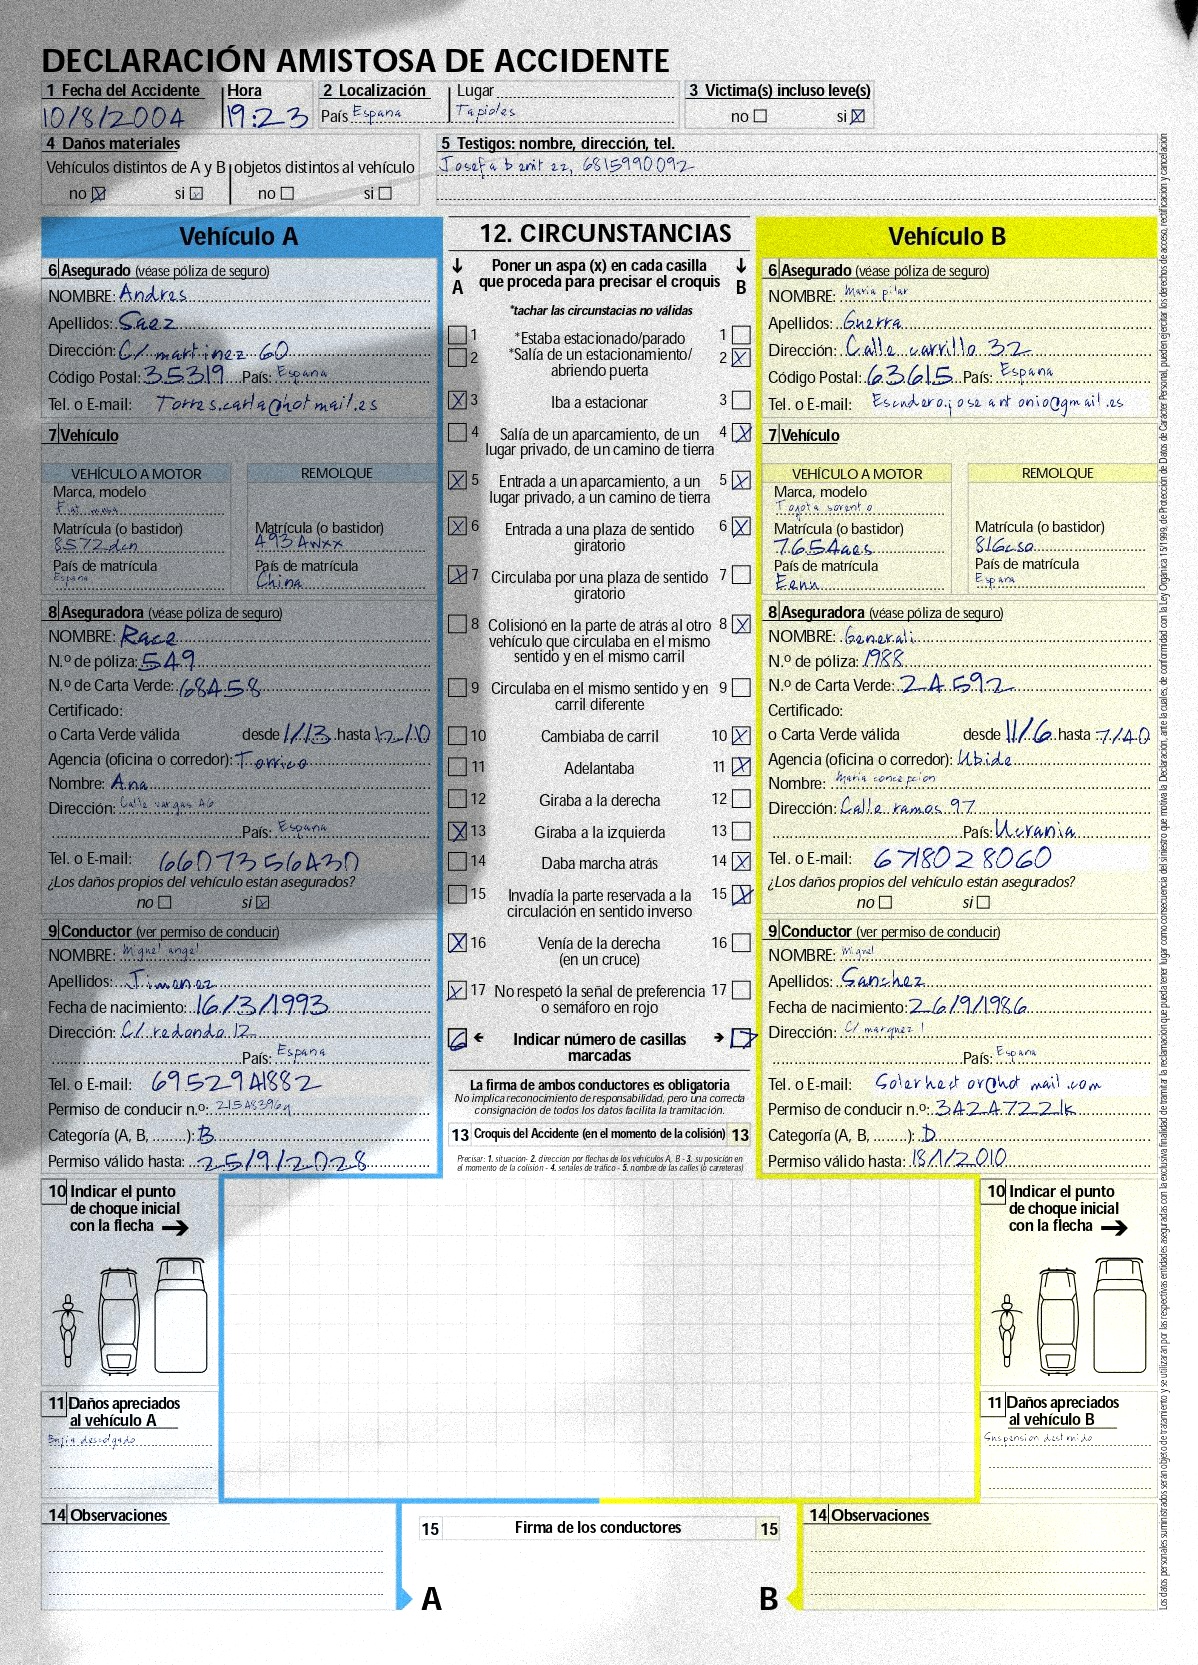 DECLARACIÓN AMISTOSA DE ACCIDENTE
1 Fecha del Accidente Hora 2 Localización Lugar 3 Victima(s) incluso leve(s)
10/8/2004 19:23 País Espana Tapioles no si X
4 Daños materiales 5 Testigos: nombre, dirección, tel.
Vehículos distintos de A y B objetos distintos al vehículo Josefa benitez, 6815990092
no X si X no si
Vehículo A
6 Asegurado (véase póliza de seguro)
NOMBRE: Andres
Apellidos: Saez
Dirección: C/ martinez 60
Código Postal: 35319 País: Espana
Tel. o E-mail: Torres.carla@hotmail.es
7 Vehículo
VEHÍCULO A MOTOR REMOLQUE
Marca, modelo
Fiat
Matrícula (o bastidor) Matrícula (o bastidor)
8572dcn 493Awxx
País de matrícula País de matrícula
Espana China
8 Aseguradora (véase póliza de seguro)
NOMBRE: Race
N.º de póliza: 549
N.º de Carta Verde: 68458
Certificado:
o Carta Verde válida desde 1/13 hasta 12/10
Agencia (oficina o corredor): Torrico
Nombre: Ana
Dirección: Calle vargas 46
País: Espana
Tel. o E-mail: 6607356430
¿Los daños propios del vehículo están asegurados?
no si X
9 Conductor (ver permiso de conducir)
NOMBRE: Miguel angel
Apellidos: Jimenez
Fecha de nacimiento: 16/3/1993
Dirección: C/ redondo 12
País: Espana
Tel. o E-mail: 6952941882
Permiso de conducir n.º: 21548396y
Categoría (A, B, ........): B
Permiso válido hasta: 25/9/2028
12. CIRCUNSTANCIAS
A Poner un aspa (x) en cada casilla B
que proceda para precisar el croquis
*tachar las circunstacias no válidas
1 *Estaba estacionado/parado 1
2 *Salía de un estacionamiento/ 2 X
abriendo puerta
X 3 Iba a estacionar 3
4 Salía de un aparcamiento, de un 4 X
lugar privado, de un camino de tierra
X 5 Entrada a un aparcamiento, a un 5 X
lugar privado, a un camino de tierra
X 6 Entrada a una plaza de sentido 6 X
giratorio
X 7 Circulaba por una plaza de sentido 7
giratorio
8 Colisionó en la parte de atrás al otro 8 X
vehículo que circulaba en el mismo
sentido y en el mismo carril
9 Circulaba en el mismo sentido y en 9
carril diferente
10 Cambiaba de carril 10 X
11 Adelantaba 11 X
12 Giraba a la derecha 12
X 13 Giraba a la izquierda 13
14 Daba marcha atrás 14 X
15 Invadía la parte reservada a la 15 X
circulación en sentido inverso
X 16 Venía de la derecha 16
(en un cruce)
X 17 No respetó la señal de preferencia 17
o semáforo en rojo
6 Indicar número de casillas 7
marcadas
La firma de ambos conductores es obligatoria
No implica reconocimiento de responsabilidad, pero una correcta
consignación de todos los datos facilita la tramitación.
13 Croquis del Accidente (en el momento de la colisión) 13
Precisar: 1. situación- 2. dirección por flechas de los vehículos A, B - 3. su posición en
el momento de la colisión - 4. señales de tráfico - 5. nombre de las calles (o carreteras)
Vehículo B
6 Asegurado (véase póliza de seguro)
NOMBRE: Maria pilar
Apellidos: Guerra
Dirección: Calle carrillo 32
Código Postal: 63615 País: Espana
Tel. o E-mail: Escudero.joseantonio@gmail.es
7 Vehículo
VEHÍCULO A MOTOR REMOLQUE
Marca, modelo
Toyota sorento
Matrícula (o bastidor) Matrícula (o bastidor)
7654aes 816cso
País de matrícula País de matrícula
Eeuu Espana
8 Aseguradora (véase póliza de seguro)
NOMBRE: Generali
N.º de póliza: 1988
N.º de Carta Verde: 24592
Certificado:
o Carta Verde válida desde 11/6 hasta 7/40
Agencia (oficina o corredor): Ubide
Nombre: Maria concepcion
Dirección: Calle ramos 97
País: Ucrania
Tel. o E-mail: 6718028060
¿Los daños propios del vehículo están asegurados?
no si
9 Conductor (ver permiso de conducir)
NOMBRE: Miguel
Apellidos: Sanchez
Fecha de nacimiento: 26/9/1986
Dirección: C/ marquez 1
País: Espana
Tel. o E-mail: Solerhector@hotmail.com
Permiso de conducir n.º: 34247221k
Categoría (A, B, ........): D
Permiso válido hasta: 18/1/2010
10 Indicar el punto
de choque inicial
con la flecha
11 Daños apreciados
al vehículo A
Bujia descolgado
10 Indicar el punto
de choque inicial
con la flecha
11 Daños apreciados
al vehículo B
Suspension destruido
14 Observaciones
15 Firma de los conductores 15
A B
14 Observaciones
Los datos personales suministrados seran objeto de tratamiento y se utilizaran por las respectivas entidades aseguradas con la exclusiva finalidad de tramitar la reclamación que pueda tener lugar como consecuencia del siniestro que motiva la Declaración, ante la cuales, de conformidad con la Ley Orgánica 15/1999, de Protección de Datos de Carácter Personal, pueden ejercitar los derechos de acceso, rectificación y cancelación